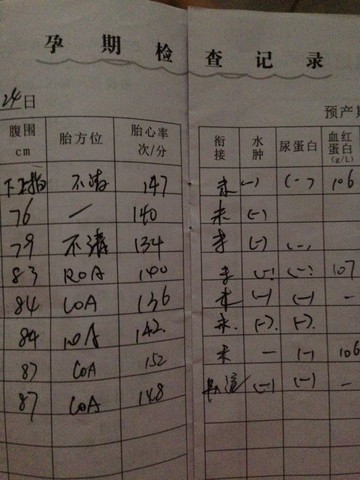 孕期检查记录
24日
预产期
腹围 cm 胎方位 胎心率 次/分 衔接 水肿 尿蛋白 血红蛋白 (g/L)
不清 147 未 (-) (-) 106
76 — 140 未 (-)
79 不清 134 未 (-) (-)
83 ROA 140 未 (-) (-) 107
84 LOA 136 未 (-) (-) —
84 LOA 142 未 (-) (-)
87 LOA 152 未 — (-) 106
87 LOA 148 (-) (-) —